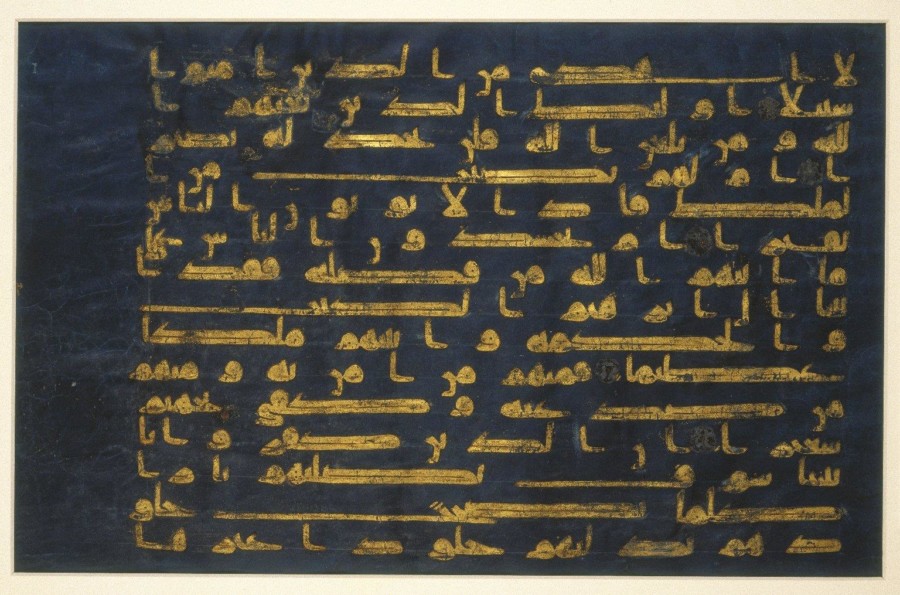 لا اهدى من الذين امنوا
سبيلا اولئك الذين لعنهم ا
لله ومن يلعن الله فلن تجد له نصير
ا ام لهم نصيب من ا
لملك فاذا لا يوتون الناس
نقيرا ام يحسدون الناس على
ما اتيهم الله من فضله فقد ا
تينا ال ابرهيم الكتب
والحكمه واتينهم ملكا
عظيما فمنهم من امن به ومنهم
من صد عنه وكفى بجهنم
سعيرا ان الذين كفروا بايا
تنا سوف نصليهم نارا
كلما نضجت جلو
دهم بدلنهم جلودا غيرها